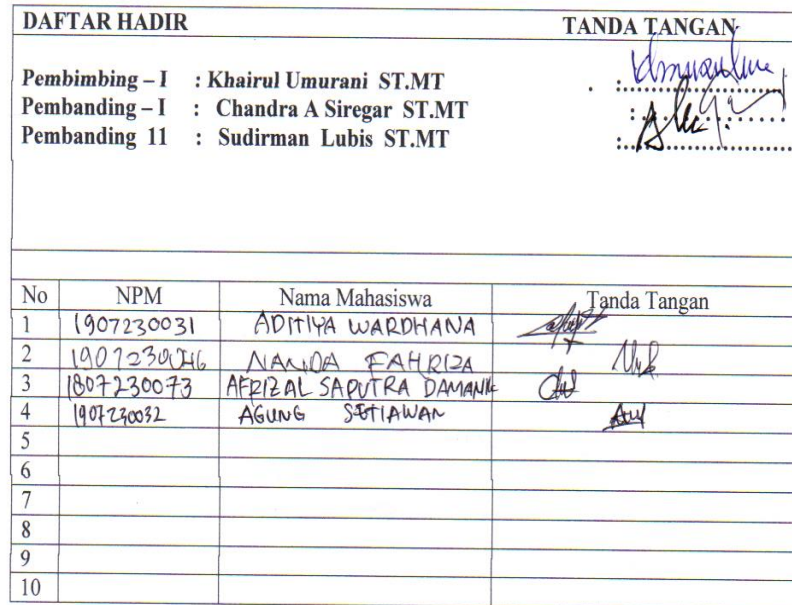 DAFTAR HADIR TANDA TANGAN
Pembimbing – I : Khairul Umurani ST.MT . :....................
Pembanding – I : Chandra A Siregar ST.MT :....................
Pembanding 11 : Sudirman Lubis ST.MT :....................
No NPM Nama Mahasiswa Tanda Tangan
1 1907230031 ADITIYA WARDHANA
2 1907230046 NANDA FAHRIZA
3 1807230073 AFRIZAL SAPUTRA DAMANIK
4 1907230032 AGUNG SETIAWAN
5
6
7
8
9
10